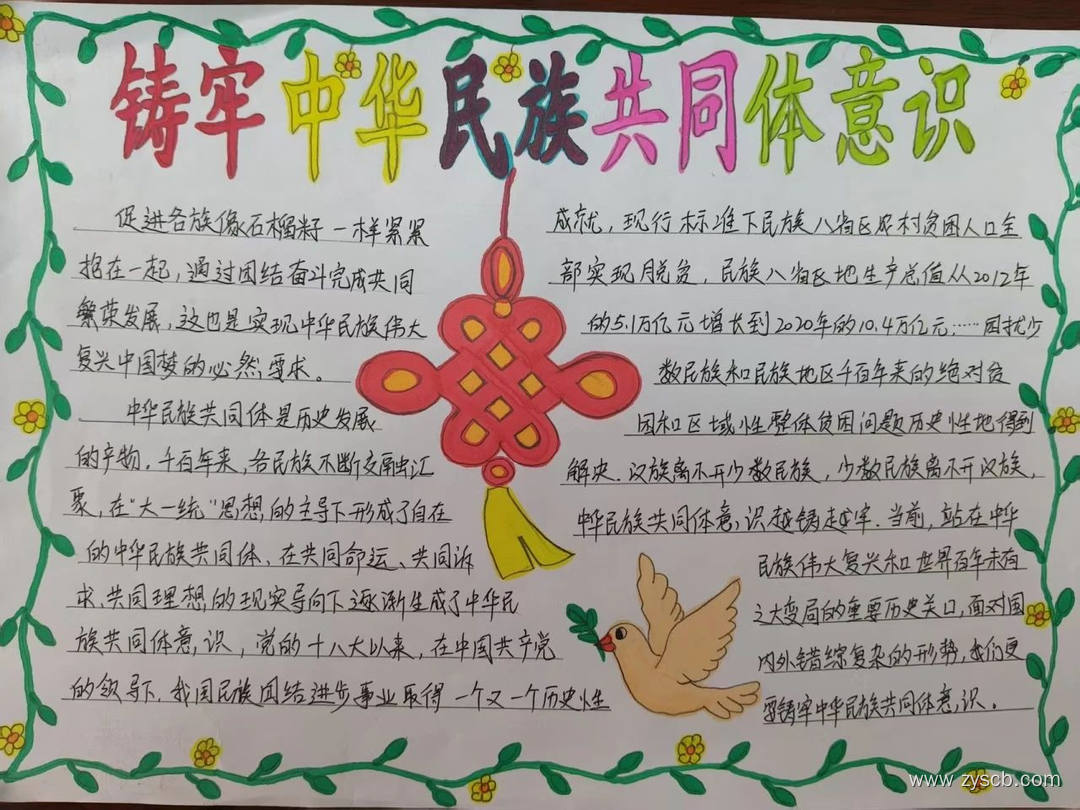 铸牢中华民族共同体意识
促进各族像石榴籽一样紧紧
抱在一起，通过团结奋斗完成共同
繁荣发展，这也是实现中华民族伟大
复兴中国梦的必然要求。
中华民族共同体是历史发展
的产物。千百年来，各民族不断交融汇
聚，在“大一统”思想的主导下形成了自在
的中华民族共同体、在共同命运、共同诉
求、共同理想的现实导向下逐渐生成了中华民
族共同体意识，党的十八大以来，在中国共产党
的领导下，我国民族团结进步事业取得一个又一个历史性
成就，现行标准下民族八省区农村贫困人口全
部实现脱贫，民族八省区地生产总值从2012年
的5.1万亿元增长到2020年的10.4万亿元……困扰少
数民族和民族地区千百年来的绝对贫
困和区域性整体贫困问题历史性地得到
解决。汉族离不开少数民族，少数民族离不开汉族，
中华民族共同体意识越铸越牢。当前，站在中华
民族伟大复兴和世界百年未有
之大变局的重要历史关口，面对国
内外错综复杂的形势，我们更
要铸牢中华民族共同体意识。
www.zyscb.com